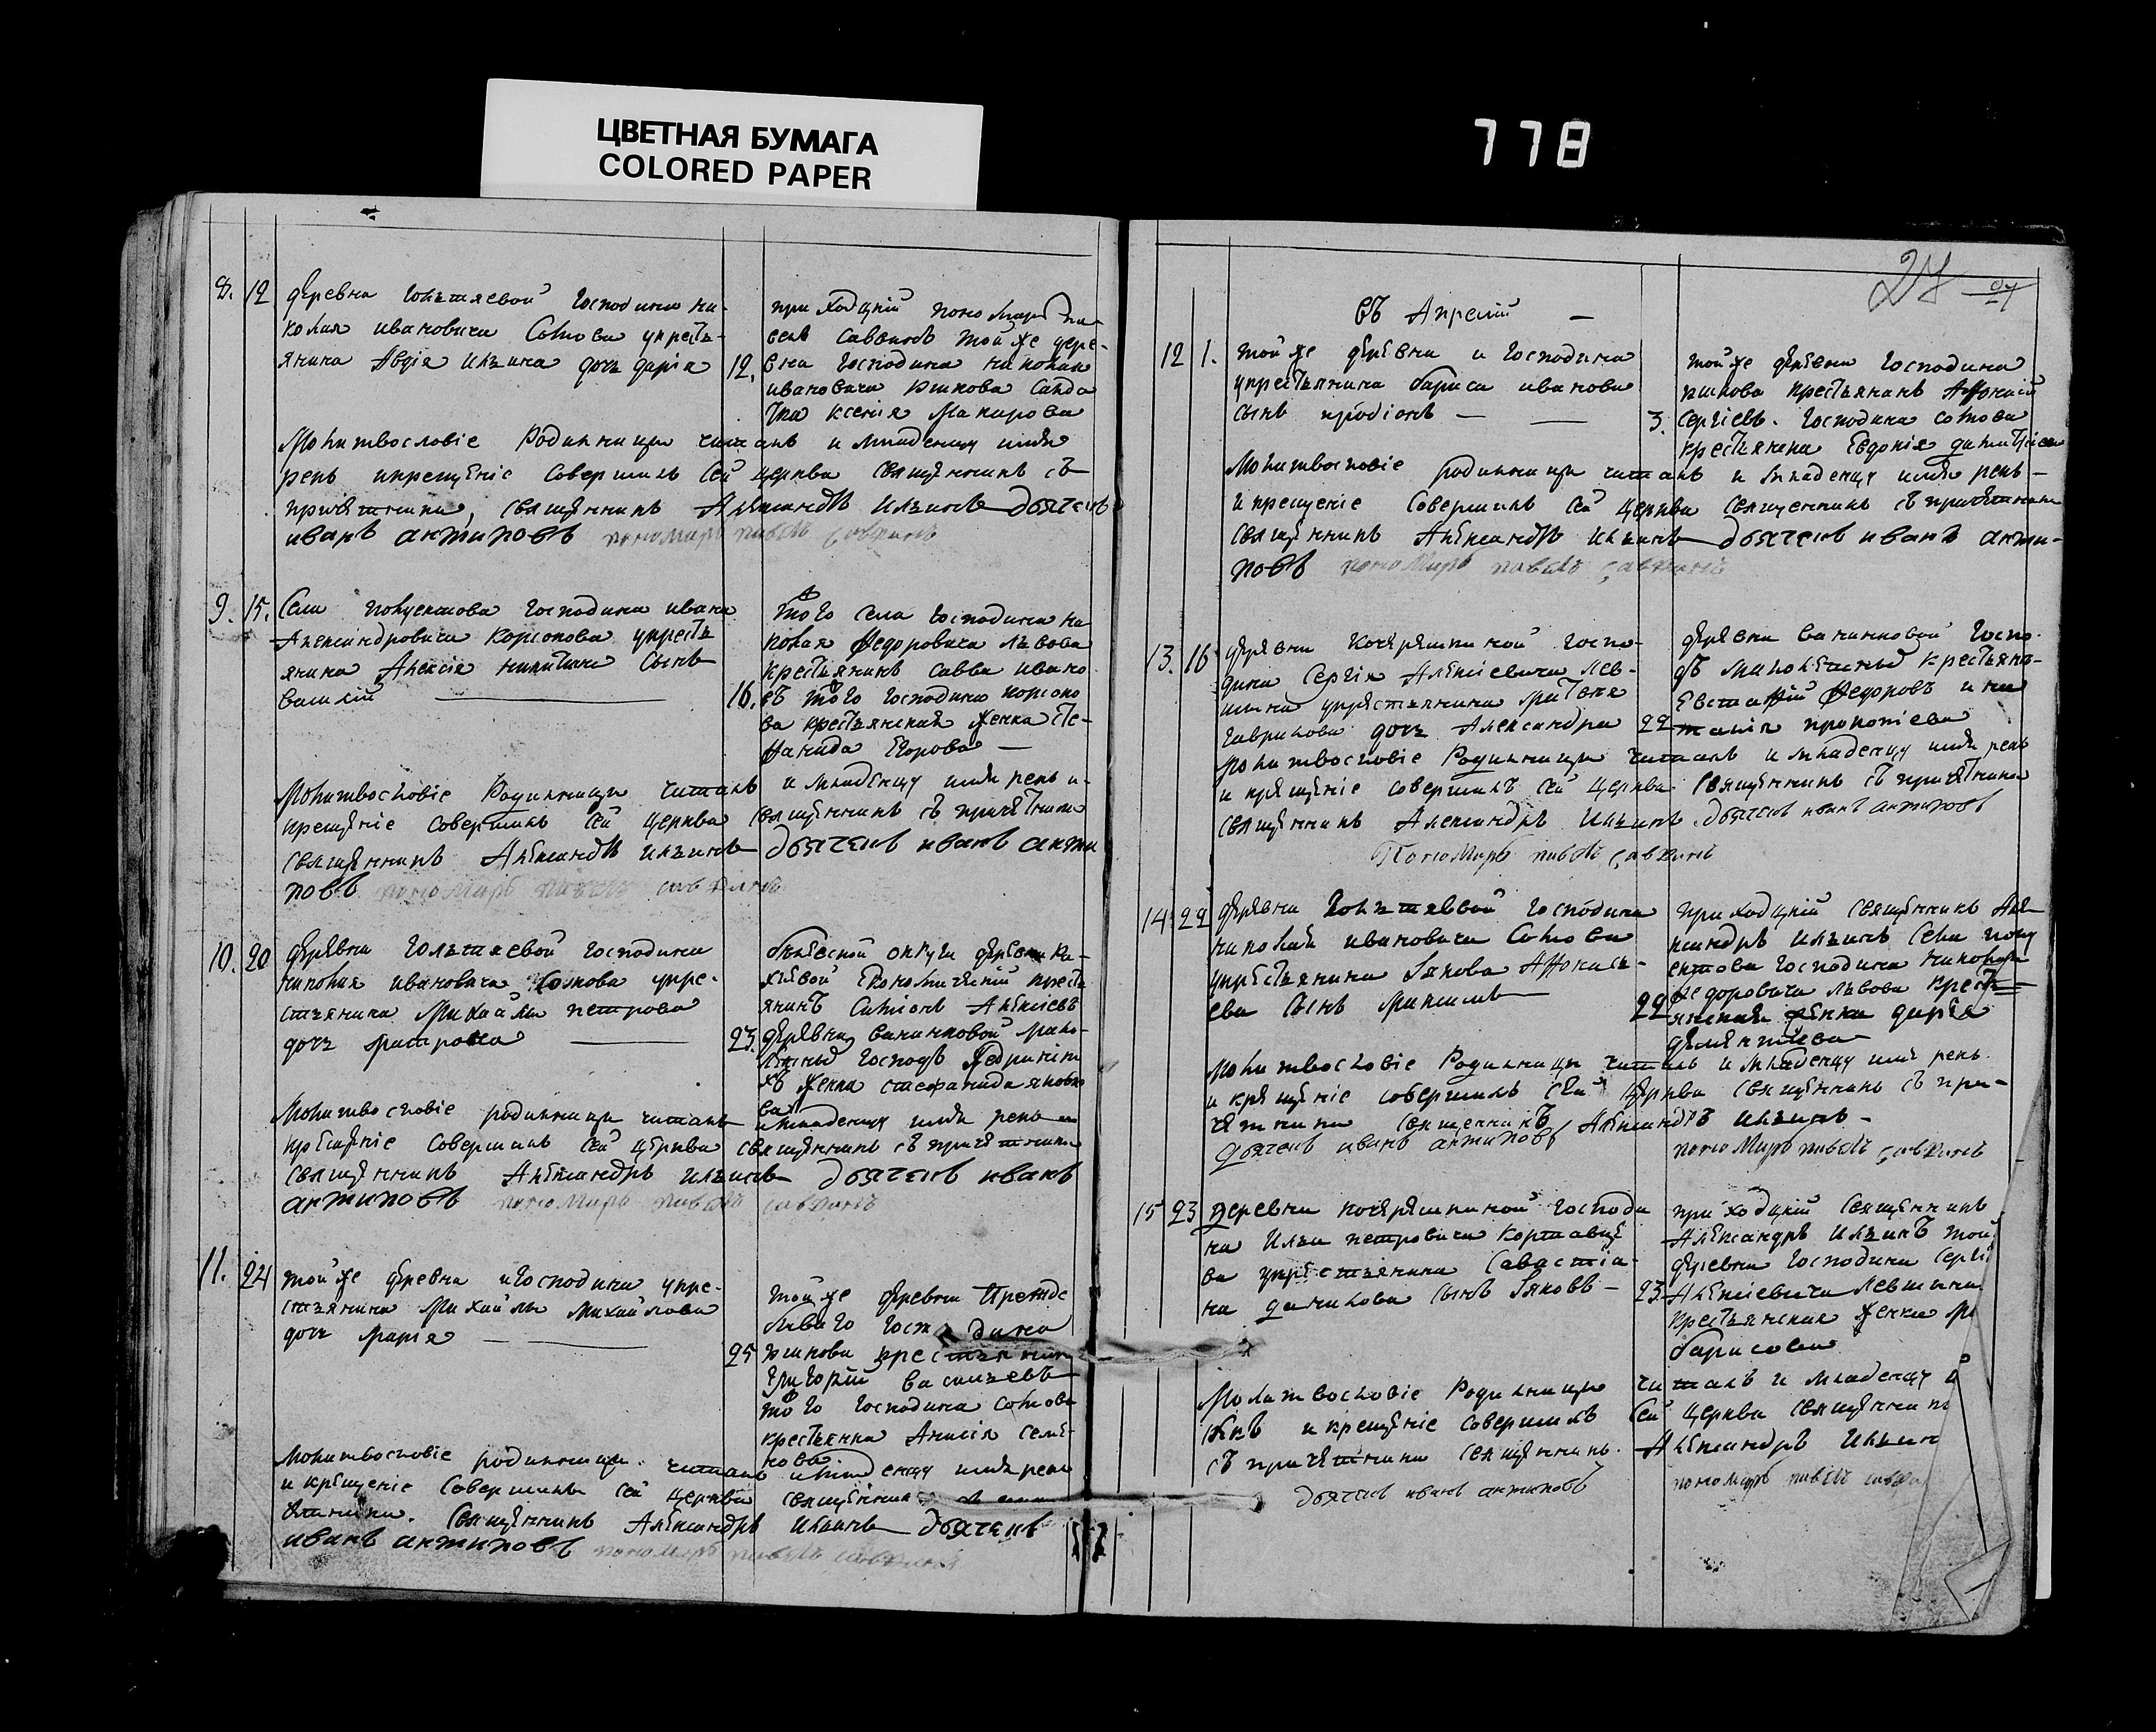 ЦВЕТНАЯ БУМАГА
COLORED PAPER
778
27
8. 12 деревни Гольтяевой Господина Ни-
колая Ивановича Сотова укресть-
янина Авдiя Ильина дочь Дарiя
приходцкiй пономарь Па-
велъ Саввинъ той же дере-
12. вни Господина Николая
Ивановича
ксенiя Макарова
Молитвословiе Родильницы читалъ и младенцу имя
рекъ икрещенiе Совершилъ Сей церкви священникъ съ
причетники, священникъ Александръ Ильинъ дьячекъ
иванъ антиповъ пономарь павелъ саввинъ
9. 15. Села Полуектова Господина ивана
Александровича Корсокова укресть
янина Алексея никитина Сынъ
Василiй
того села Господина Ни
колая Федоровича Львова
крестьянинъ Савва ивано
16. въ того Господина Корсоко
ва крестьянская женка Сте-
фанида Егорова
Молитвословiе Родильницы читалъ и младенцу имя рекъ и-
крещенiе совершилъ Сей церкви священникъ съ причетники
священникъ Александръ Ильинъ дьячекъ иванъ анти
повъ пономарь павелъ саввинъ
10. 20 деревни Гольтяевой Господина
николая ивановича Сотова укре-
стьянина Михайлы петрова
дочь
округи деревни
Економической кресть
янинъ Симiонъ Алексiевъ
23. деревни Вашнковой
Господъ
женка стефанида яковле
ва
Молитвословiе родильницы читалъ имладенцу имя рекъ и
крещенiе Совершилъ Сей церкви священникъ съ причетники
священникъ Александръ Ильинъ дьячекъ иванъ
антиповъ пономарь павелъ саввинъ
11. 24 той же деревни игосподина укре-
стьянина Михайлы Михайлова
дочь Марiя
той же деревни
Господина
25 крестьянинъ
Григорiй Васильевъ
того Господина Сотова
крестьянка Анисiя Семе-
нова.
Молитвословiе родильницы читалъ имладенцу имя рекъ
и крещенiе Совершилъ Сей церкви священникъ
Священникъ Александръ Ильинъ дьячекъ
иванъ антиповъ пономарь павелъ саввинъ
въ Апрелiй
12 1. той же деревни и Господина
укрестьянина бариса иванова
сынъ иродiонъ
той же деревни Господина
крестьянинъ Афонасiй
3. Сергiевъ. Господина сотова
крестьянина Евдокiя
Молитвословiе родильницы читалъ и младенцу имя рекъ
и крещенiе Совершилъ Сей церкви священникъ съ причетники
священникъ Александръ Ильинъ дьячекъ иванъ анти-
повъ пономарь павелъ саввинъ
13. 16 деревни Кочеряшкиной Госпо-
дина Сергiя Алексiевича Лев-
шина укрестьянина Матвея
гаврилова дочь Александра
деревни Вашнковой Госпо-
дъ крестьянъ
Евстафiй Федоровъ и на
22 талiя прокопiева
Молитвословiе Родильницы читалъ и младенцу имя рекъ
и крещенiе совершилъ Сей церкви Священникъ съ причетники
священникъ Александръ Ильинъ. дьячекъ иванъ антиповъ
Пономарь павелъ саввинъ
14. 22 деревни Гольтяевой Господина
николая ивановича Сотова
укрестьянина Iакова Афонась-
ева Сынъ
приходцкiй священникъ Але
ксандръ Ильинъ Села полу
ектова Господина николая
Федоровича Львова крест
22 янская женка дарья
дементiева
Молитвословiе Родильницы читалъ и младенцу имя рекъ.
и крещенiе совершилъ Сей церкви священникъ съ при-
четники священникъ Александръ Ильинъ
дьячекъ иванъ антиповъ пономарь павелъ саввинъ
15 23 деревни кочеряшкиной Господи
на Ильи петровича
ва укрестьянина Савастiа-
на данилова Сынъ Iяковъ
приходцкiй Священникъ
Александръ Ильинъ той
деревни Господина Сергi
23 Алексiевича Левшина
крестьянская женка
барисова
Молитвословiе Родильницы читалъ и младенцу
рекъ и крещенiе совершилъ Сей церкви священникъ
съ причетники священникъ. Александръ Ильинъ
дьячекъ иванъ антиповъ пономарь павелъ